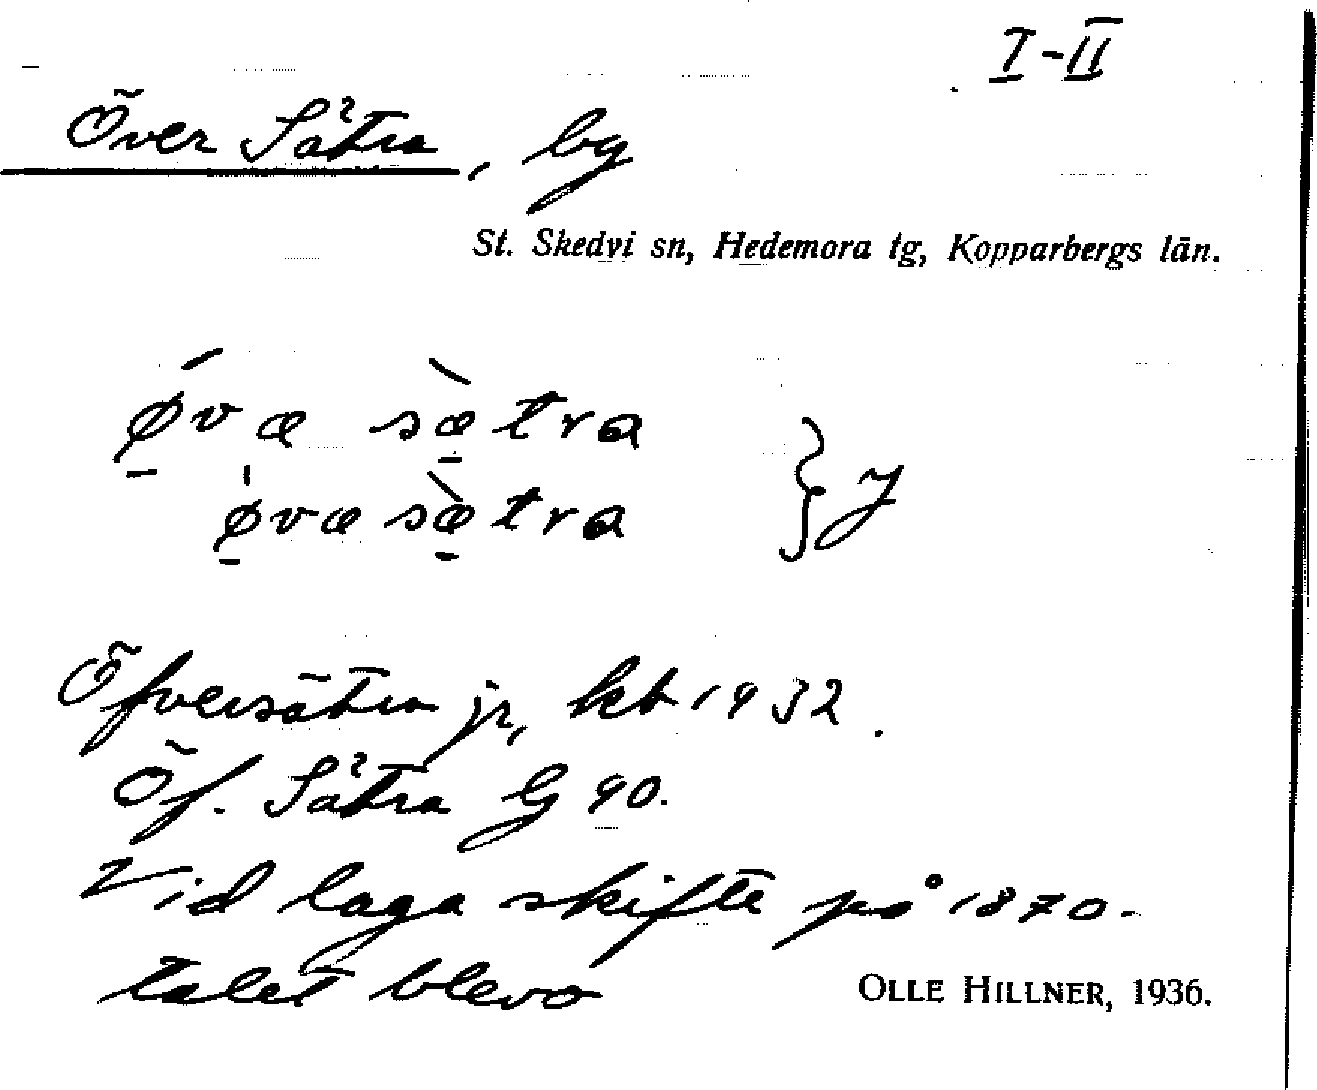 I-II
Över Sätra, bg
St. Skedvi sn, Hedemora tg, Kopparbergs län.
ǿ̱væ sæ̱̀tra
ǿ̱væsæ̱̀tra } J
Öfversätra jr, kb 1932.
Öf. Sätra G 90.
Vid laga skifte på 1870-
talet blevo
OLLE HILLNER, 1936.